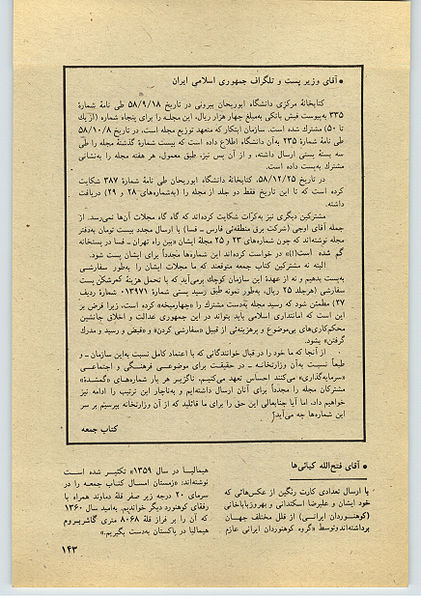 ● آقای وزیر پست و تلگراف جمهوری اسلامی ایران
کتابخانهٔ مرکزی دانشگاه ابوریحان بیرونی در تاریخ ۵۸/۹/۱۸ طی نامهٔ شمارهٔ
۳۳۵ به‌پیوست فیش بانکی به‌مبلغ چهار هزار ریال، این مجلـه را برای پنجاه شماره (از یك
تا ۵۰) مشترك شده است. سازمان ابتکار که متعهد توزیع مجله است، در تاریخ ۵۸/۱۰/۸
طی نامهٔ شمارهٔ ۲۳۵ به‌آن دانشگاه اطلاع داده است که بیست شمارهٔ گذشتهٔ مجله را طی
سه بستهٔ پستی ارسال داشته، و از آن پس نیز، طبق معمول، هر هفته مجله را به‌نشانی
مشترك به‌پست داده است.
در تاریخ ۵۸/۱۲/۲۵، کتابخانهٔ دانشگاه ابوریحان طی نامهٔ شمارهٔ ۳۸۷ شکایت
کرده است که تا این تاریخ فقط دو جلد از مجله را (به‌شماره‌های ۲۸ و ۲۹) دریافت
داشته.
مشترکین دیگری نیز به‌کرّات شکایت کرده‌اند که گاه گاه مجلات آن‌ها نمی‌رسد. از
جمله آقای اوجی (شرکت برق منطقه‌ئی فارس ـ فسا) با ارسال مجدد بیست تومان به‌دفتر
مجله نوشته‌اند که چون شماره‌های ۲۳ و ۲۵ مجلهٔ ایشان «بین راه تهران ـ فسا در پستخانه
گم شده است(!)» در خواست کرده‌اند این شماره‌ها مجدداً برای ایشان پست شود.
البته نه مشترکین کتاب جمعه متوقعند که ما مجلات ایشان را به‌طور سفارشی
به‌پست بدهیم و نه از عهدهٔ این سازمان کوچك برمی‌آید که با تحمل هزینهٔ کمرشکن پست
سفارشی (هرجلد ۲۵ ریال، به‌طور نمونه طبق رسید پستی شمارهٔ ۰۱۳۴۷۱ شمارهٔ ردیف
۲۷) مطمئن شود که رسید مجله به‌دست مشترك را «چهارمیخه» کرده است، زیرا فرض بر
این است که امانتداری اسلامی باید بتواند در این جمهوری عدالت و اخلاق جانشین
محکم‌کاری‌های بی‌موضوع و پرهزینه‌ئی از قبیل «سفارشی کردن» و «قبض و رسید و مدرك
گرفتن» بشود.
از آنجا که ما خود را در قبال خوانندگانی که با اعتماد کامل نسبت به‌این سازمان ـ و
طبعاً نسبت به‌آن وزارتخانـه ـ در حقیقت برای موضوعـی فرهنگـی و اجتماعـی
«سرمایه‌گذاری» می‌کنند احساس تعهد می‌کنیـم، ناگزیـر هر بار شماره‌هـای «گمشـدهٔ»
مشترکان مجله را مجدداً برای آنان ارسال داشته‌ایم و به‌ناچار این ترتیب را ادامه نیز
خواهیم داد، اما آیا جنابعالی این حق را برای ما قائلید که از آن وزارتخانه بپرسیم بر سر
این شماره‌ها چه می‌آید؟
کتاب جمعه
● آقای فتح‌الله کیائی‌ها
با ارسال تعدادی کارت رنگین از عکس‌هائی که
خود ایشان و علیرضا اسکندانی و بهروزباباخانی
(کوهنـوردان ایرانـی) از قلل مختلف جهـان
برداشته‌اندوتوسط «گروه کوهنوردان ایرانی عازم
هیمالیا در سال ۱۳۵۹» تکثیـر شده است
نوشته‌اند: «زمستان امسـال کتـاب جمعـه را در
سرمای ۲۰ درجه زیر صفر قلهٔ دماوند همراه با
رفقای کوهنورد دیگر خواندیم. به‌امید سال ۱۳۶۰
که آن را بر فراز قلهٔ ۸۰۶۸ متری گاشربـروم
هیمالیا در پاکستان به‌دست بگیریم.»
۱۴۳